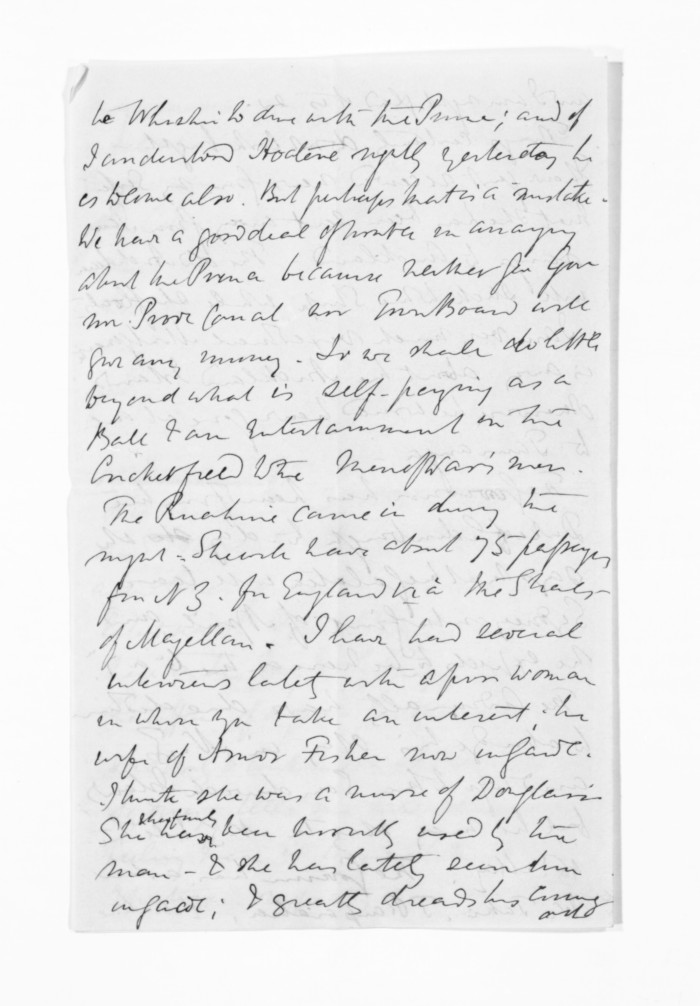 be Whist to dine with the Prince; and if
I understood Hoctene rightly yesterday he
is to come also. But perhaps that is a mistake.
We have a good deal of trouble in arranging
about the Prince because neither Gen Gov
nor. Prov. Council nor Town Board will
give any money. So we shall do little
beyond what is self-paying as a
Ball & an Entertainment in the
Cricketfield to the Men of War's men.
The Ruahine came in during the
night - She will have about 75 passengers
from N Z. for England via the Straits
of Magellan. I have had several
interviews lately with a poor woman
in whom you take an interest; the
wife of Amos Fisher now in gaol.
I think she was a nurse of Douglas's
She & her family have been horribly used by the
man - & she has lately seen him
in gaol; & greatly dreads his coming
out